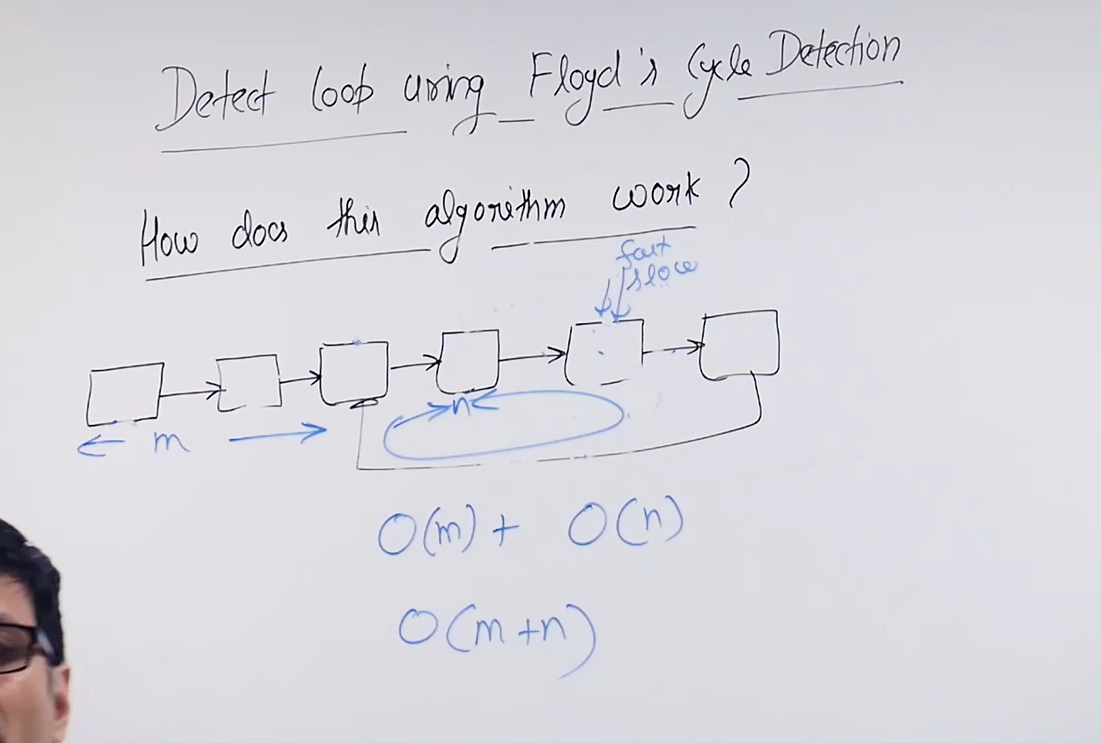 Detect loop using Floyd's Cycle Detection
How does this algorithm work?
fast
slow
m
n
O(m) + O(n)
O(m+n)